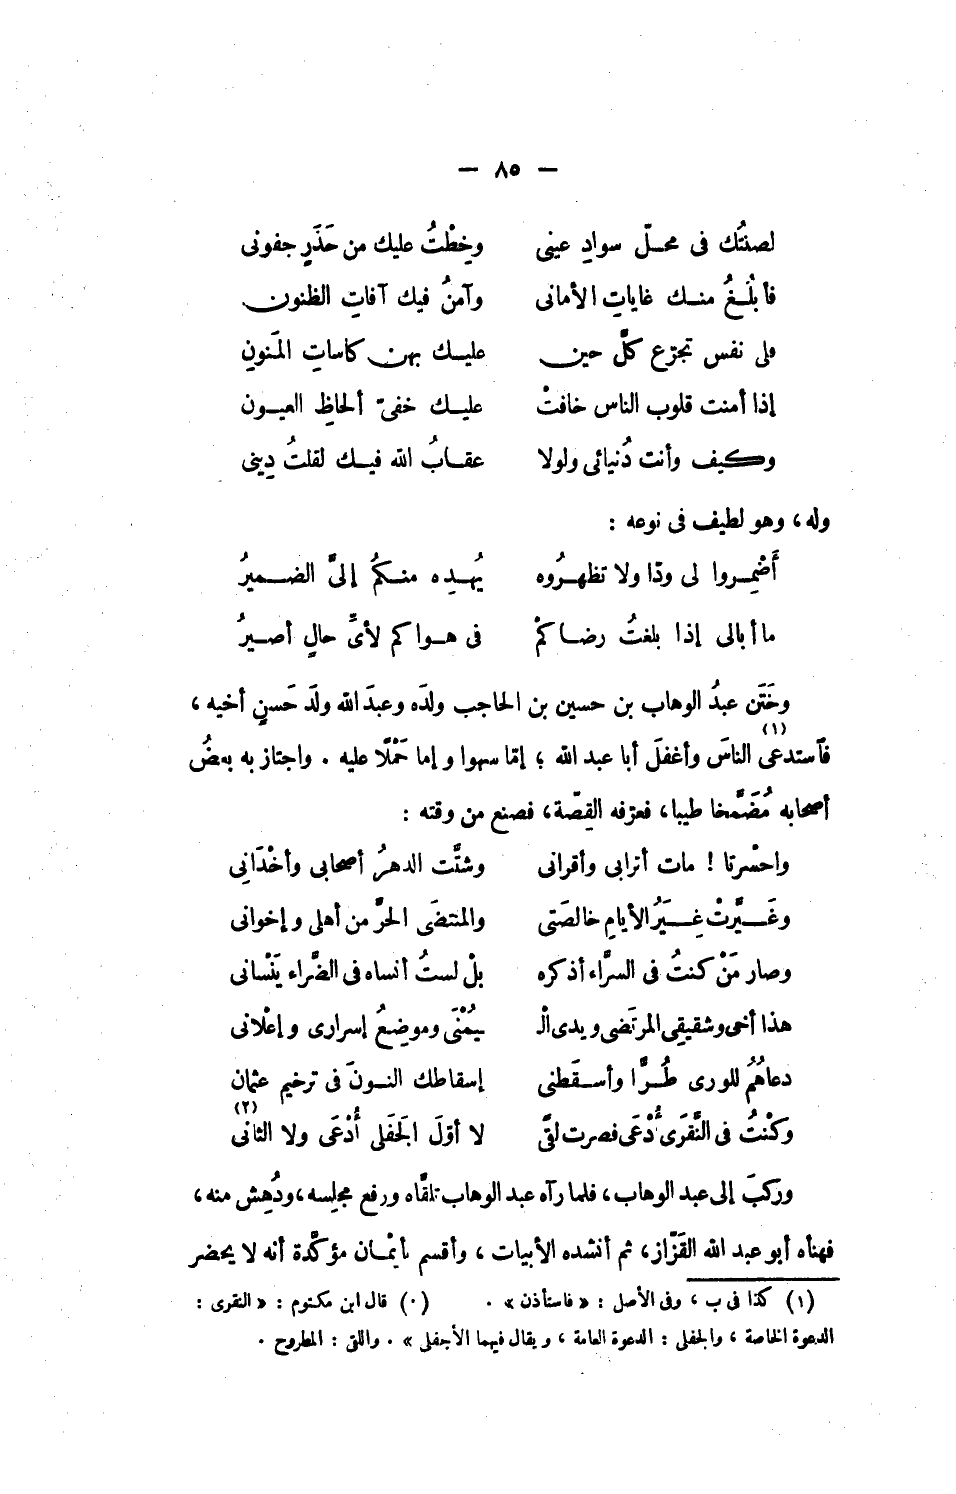 — ٨٥ —
لصنتُك فى محلّ سوادِ عينى وخِطْتُ عليك من حَذَرٍ جفونى
فأبلُغُ منك غاياتِ الأمانى وآمنُ فيك آفاتِ الظنون
ولى نفس تجرّع كلَّ حين عليك بهن كاساتِ المَنونِ
إذا أمنت قلوب الناس خافتْ عليك خفىّ ألحاظِ العيون
وكيف وأنت دُنيائى ولولا عقابُ الله فيك لقلتُ دِينى
وله، وهو لطيف فى نوعه :
أَضْمِروا لى ودّا ولا تظهِرُوه يُهدِه منكمُ إلىَّ الضميرُ
ما أبالى إذا بلغتُ رضاكمْ فى هواكم لأىِّ حالٍ أصيرُ
وخَتَن عبدُ الوهاب بن حسين بن الحاجب ولدَه وعبدَ الله ولَد حَسنٍ أخيه ،
فآستدعى(١) الناسَ وأغفلَ أبا عبد الله ؛ إمّا سهوا وإما حَمْلًا عليه . واجتاز به بعضُ
أصحابه مُضَمَّخا طيبا، فعرّفه القِصّة، فصنع من وقته :
واحسْرتا ! مات أترابى وأقرانى وشتَّت الدهرُ أصحابى وأخْدَانِى
وغَيَّرتْ غِيَرُ الأيامِ خالصَتى والمنتضَى الحرَّ من أهلى وإخوانى
وصار مَنْ كنتُ فى السرَّاء أذكره بلْ لستُ أنساه فى الضَّراء يَنْسانى
هذا أخى وشقيقِى المرتَضى ويدى الْ يُمْنَى وموضِعُ إسرارى وإعْلانى
دعاهُمُ للورى طُرًّا وأسقَطنى إسقاطك النونَ فى ترخيم عثمان
وكنْتُ فى النَّقَرَى أُدْعَى فصرت لقًى لا أوّلَ الجَفَلى أُدْعَى ولا الثانى (٢)
وركبَ إلى عبد الوهاب، فلما رآه عبد الوهاب تلقَّاه ورفع مجلِسه، ودُهِش منه،
فهنأه أبو عبد الله القَزّاز، ثم أنشده الأبيات ، وأقسم بأَيْمان مؤكَّدة أنه لا يحضر
(١) كذا فى ب ، وفى الأصل : « فاستأذن » . (٠) قال ابن مكتوم : « النقرى :
الدعوة الخاصة ، والجفلى : الدعوة العامة ، ويقال فيهما الأجفلى » . واللق : المطروح .